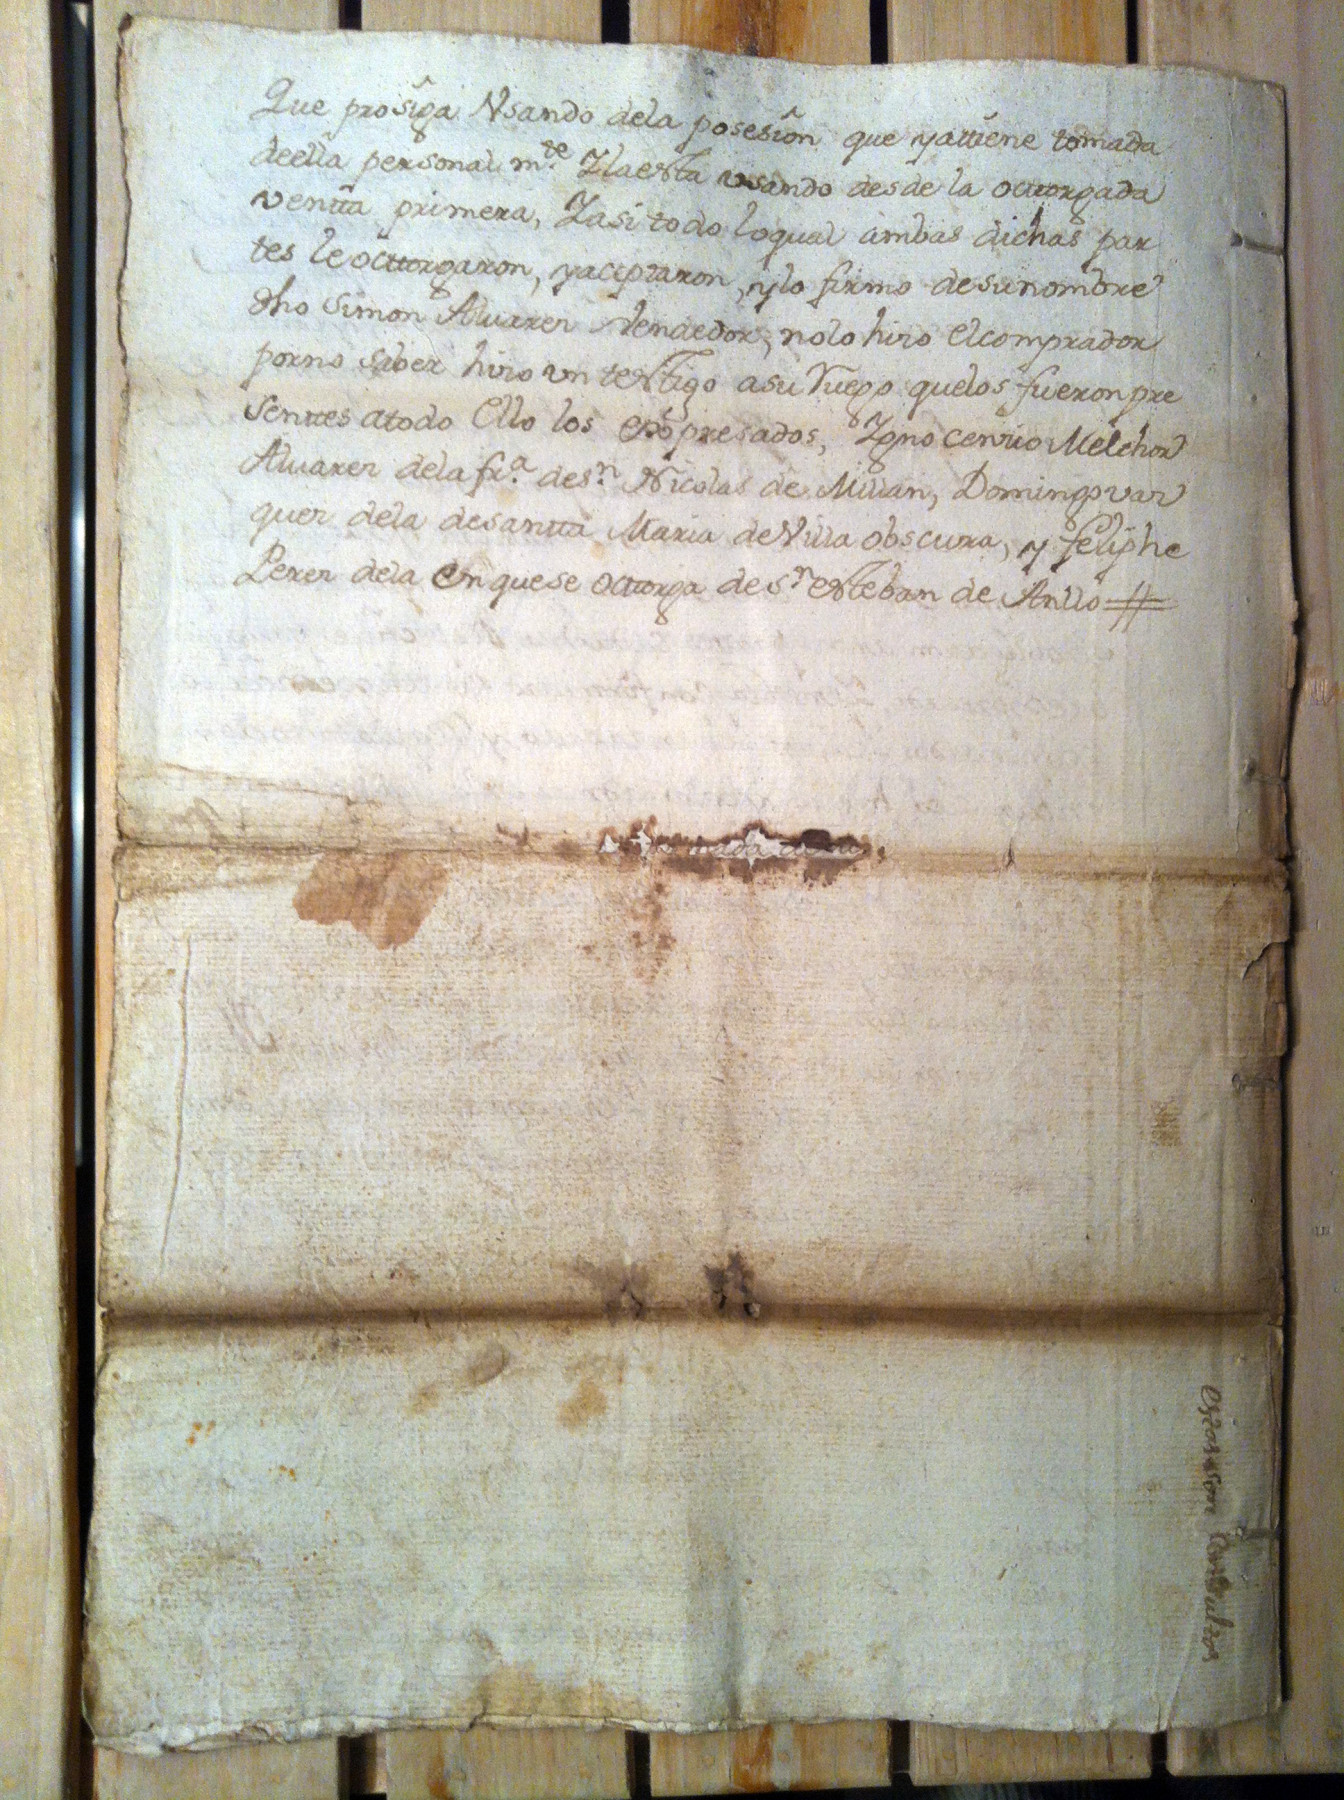 Que prosiga Usando dela posesion que yattiene tomada
deella personal m.te Ylaesta usando desde la octtorgada
ventta primera, Yasi todo loqual ambas dichas par
tes leocttorgaron, yaceptaron, ylo firmo desunombre
dho Simon Alvarez Vendedor, nolo hizo Elcomprador
porno saber hizo un testigo asu Ruego quelos fueron pre
senttes atodo Ello los expresados, Ygnocencio Melchor
Alvarez dela fr.a des.n Nicolas de Millan, Domingo var
quez dela desantta Maria deVilla obscura, y feliphe
Perez dela En quese octtorga de s.n esteban de Anllo